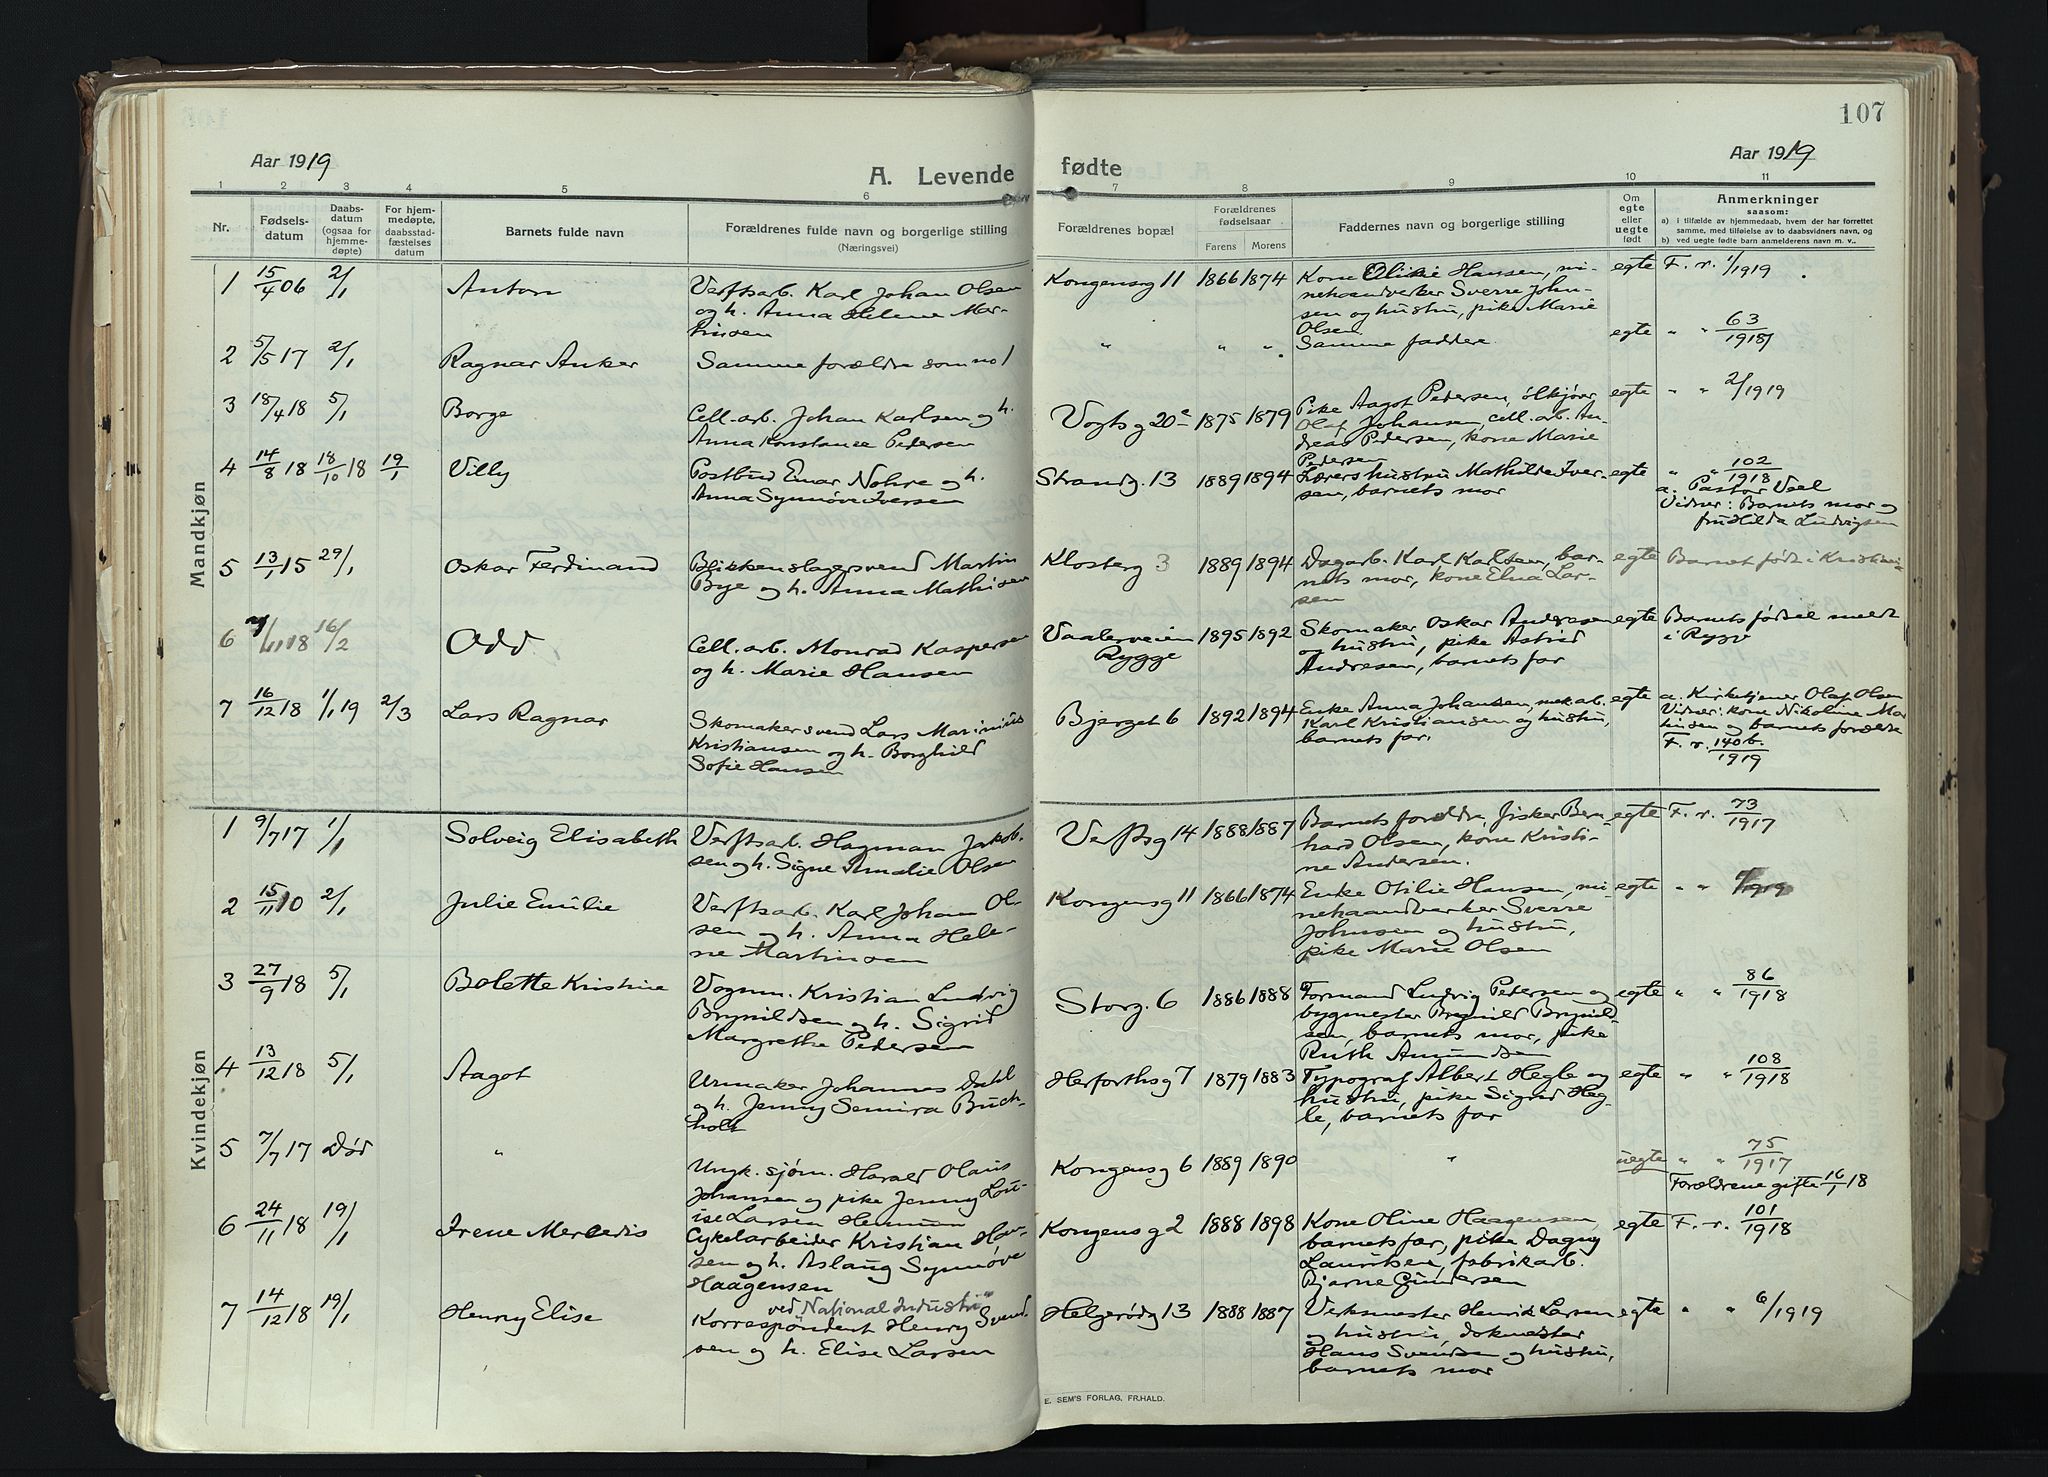 107
Aar 1919
A. Levende
fødte
Aar 1919
1 2 3 4 5 6 7 8 9 10 11
Nr.
Fødsels-
datum
Daabs-
datum
(ogsaa for
hjemme-
døpte)
For hjem-
medøpte,
daabsstad-
fæstelses
datum
Barnets fulde navn
Forældrenes fulde navn og borgerlige stilling
(Næringsvei)
Forældrenes bopæl
Forældrenes
fødselsaar
Farens Morens
Faddernes navn og borgerlige stilling
Om
egte
eller
uegte
født
Anmerkninger
saasom:
a) i tilfælde av hjemmedaab, hvem der har forrettet
samme, med tilføielse av to daabsvidners navn, og
b) ved uegte fødte barn anmelderens navn m. v..
Mandkjøn
1 15/4 06 2/1 Anton
Verftsarb. Karl Johan Olsen
og h. Anna Helene Mar-
tinsen
Kongensg 11 1866 1874
Kone Hansen, mi-
nehaandverker Sverre John-
sen og hustru, pike Marie
Olsen
egte F. r. 1/1919
2 5/5 17 2/1 Ragnar Anker
Samme forældre som no 1
" " "
Samme faddere.
egte " " 63/1918
3 18/4 18 5/1 Borge
Cell. arb. Johan Karlsen og h.
Anna Konstanse Pedersen
Vogtsg 20 1875 1879
Pike Aagot Pedersen, ölkjører
Olaf Johansen, cell. arb. An-
dreas Pedersen, kone Marie
Pedersen
egte " " 2/1919
4 14/8 18 18/10 18 19/1 Villy
Postbud Einar Nohre og h.
Anna Synnøve Iversen
Strandg. 13 1889 1894
Lærers hustru Mathilde Iver-
sen, barnets mor
egte " " 102/1918
a. Pastor Vael
Vidner: Barnets mor og
fru Hilda Ludvigsen
5 13/1 15 29/1 Oskar Ferdinand
Blikkenslagersvend Martin
Bye og h. Anna Mathisen
Klosterg 3 1889 1894
Dagarb. Karl Karlsen, bar-
nets mor, kone Elna Lar-
sen
egte Barnet født i Kristiania
6 18 16/2 Odd
Cell. arb. Monrad Kaspersen
og h. Marie Hansen
Vaalerveien
Rygge
1895 1892
Skomaker Oskar Andresen
og hustru, pike Astrid
Andresen, barnets far
egte Barnets fødsel meldt
i Rygge
7 16/12 18 1/1 19 2/3 Lars Ragnar
Skomakersvend Lars Marinius
Kristiansen og h. Borghild
Sofie Hansen
Bjerget 6 1892 1894
Enke Anna Johansen, mek. arb.
Karl Kristiansen og hustru,
barnets far.
egte a. Kirketjener Olaf Olsen
Vidner: kone Nikoline Mar
tinsen og barnets forældre
F. r. 140 b./1919
Kvindekjøn
1 9/7 17 1/1 Solveig Elisabeth
Verftsarb. Hagman Jakob-
sen og h. Signe Amalie Olsen
Verftsg 14 1888 1887
Barnets forældre, fisker Bern-
hard Olsen, kone Kristi-
ne Andersen.
egte F. r. 73/1917
2 15/11 10 2/1 Julie Emilie
Verftsarb. Karl Johan Ol-
sen og h. Anna Hele-
ne Martinsen
Kongensg 11 1866 1874
Enke Otilie Hansen, mi
nehaandverker Sverre
Johnsen og hustru,
pike Marie Olsen
egte " "
3 27/9 18 5/1 Bolette Kristine
Vognm. Kristian Ludvig
Brynildsen og h. Sigrid
Margrethe Pedersen
Storg. 6 1886 1888
Formand Ludvig Pedersen og
bygmester Brynild Brynild-
sen, barnets mor, pike
Ruth Amundsen
egte " " 86/1918
4 13/12 18 5/1 Aagot
Urmaker Johannes Dahl
og h. Jenny Semira Buch-
holt
Herforthsg 7 1879 1883
Typograf Albert Hegle og
hustru, pike Sigrid Heg-
le, barnets far
egte " " 108/1918
5 7/7 17 Død "
Ungk. sjøm. Harald Olaus
Johansen og pike Jenny Lou-
ise Larsen
Kongensg 6 1889 1890
"
uegte " " 75/1917
Forældrene gifte 16/1 18
6 24/11 18 19/1 Irene Mercedis
Cykelarbeider Kristian Han-
sen og h. Aslaug Synnøve
Haagensen
Kongensg 2 1888 1898
Kone Oline Haagensen,
barnets far, pike Dagny
Lauritsen, fabrikarb.
Bjarne Gundersen
egte F. r. 101/1918
7 14/12 18 19/1 Henny Elise
ved National Industri
Korrespondent Henry Svend-
sen og h. Elise Larsen
Helgerødg 13 1888 1887
Verksmester Henrik Larsen
og hustru, dokmester
Hans Svendsen og hustru,
barnets mor
egte " " 6/1919
E. SEM'S FORLAG, FR.HALD.